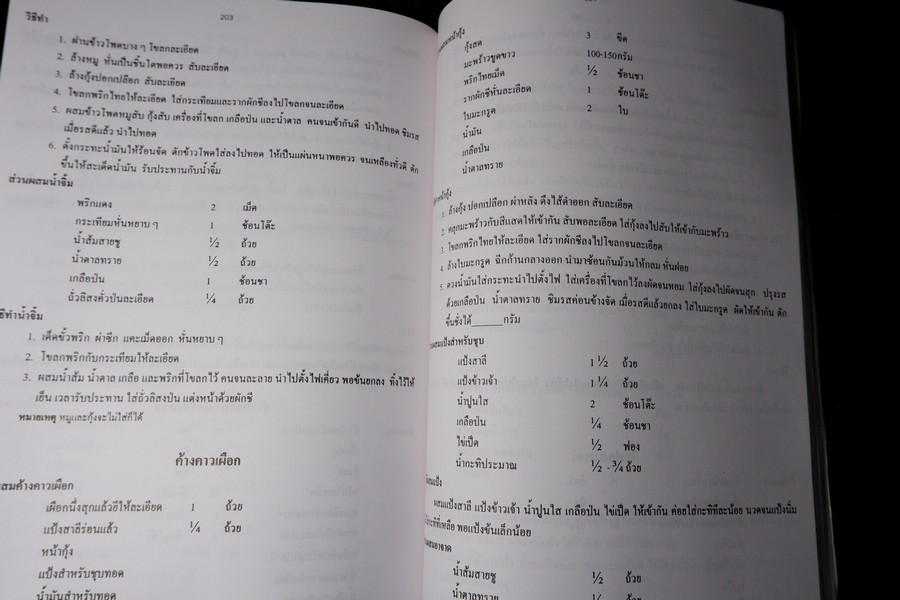 วิธีทำ
203
1. ฝานข้าวโพดบาง ๆ โขลกละเอียด
2. ล้างหมู หั่นเป็นชิ้นโตพอควร สับละเอียด
3. ล้างกุ้งปอกเปลือก สับละเอียด
4. โขลกพริกไทยให้ละเอียด ใส่กระเทียมและรากผักชีลงไปโขลกจนละเอียด
5. ผสมข้าวโพดหมูสับ กุ้งสับ เครื่องที่โขลก เกลือป่น และน้ำตาล คนจนเข้ากันดี นำไปทอด ชิมรส
เมื่อรสดีแล้ว นำไปทอด
6. ตั้งกระทะน้ำมันให้ร้อนจัด ตักข้าวโพดใส่ลงไปทอด ให้เป็นแผ่นหนาพอควร จนเหลืองทั่วดี ตัก
ขึ้นให้สะเด็ดน้ำมัน รับประทานกับน้ำจิ้ม
ส่วนผสมน้ำจิ้ม
พริกแดง 2 เม็ด
กระเทียมหั่นหยาบ ๆ 1 ช้อนโต๊ะ
น้ำส้มสายชู ½ ถ้วย
น้ำตาลทราย ½ ถ้วย
เกลือป่น 1 ช้อนชา
ถั่วลิสงคั่วป่นละเอียด ¼ ถ้วย
ธีทำน้ำจิ้ม
1. เด็ดขั้วพริก ผ่าซีก แคะเม็ดออก หั่นหยาบ ๆ
2. โขลกพริกกับกระเทียมให้ละเอียด
3. ผสมน้ำส้ม น้ำตาล เกลือ และพริกที่โขลกไว้ คนจนละลาย นำไปตั้งไฟเคี่ยว พอข้นยกลง ทิ้งไว้ให้
เย็น เวลารับประทาน ใส่ถั่วลิสงป่น แต่งหน้าด้วยผักชี
หมายเหตุ หมูและกุ้งจะไม่ใส่ก็ได้
ค้างคาวเผือก
สมค้างคาวเผือก
เผือกนึ่งสุกแล้วยีให้ละเอียด 1 ถ้วย
แป้งสาลีร่อนแล้ว ¼ ถ้วย
หน้ากุ้ง
แป้งสำหรับชุบทอด
น้ำมันสำหรับทอด
หน้ากุ้ง
กุ้งสด 3 ขีด
มะพร้าวขูดขาว 100-150กรัม
พริกไทยเม็ด ½ ช้อนชา
รากผักชีหั่นละเอียด 1 ช้อนโต๊ะ
ใบมะกรูด 2 ใบ
น้ำมัน
เกลือป่น
น้ำตาลทราย
หน้ากุ้ง
1. ล้างกุ้ง ปอกเปลือก ผ่าหลัง ดึงไส้ดำออก สับละเอียด
2. คลุกมะพร้าวกับสีแสดให้เข้ากัน สับพอละเอียด ใส่กุ้งลงไปสับให้เข้ากับมะพร้าว
3. โขลกพริกไทยให้ละเอียด ใส่รากผักชีลงไปโขลกจนละเอียด
4. ล้างใบมะกรูด ฉีกก้านกลางออก นำมาซ้อนกันม้วนให้กลม หั่นฝอย
5. ตวงน้ำมันใส่กระทะนำไปตั้งไฟ ใส่เครื่องที่โขลกไว้ลงผัดจนหอม ใส่กุ้งลงไปผัดจนสุก ปรุงรส
ด้วยเกลือป่น น้ำตาลทราย ชิมรสค่อนข้างจัด เมื่อรสดีแล้วยกลง ใส่ใบมะกรูด ผัดให้เข้ากัน ตัก
ขึ้นชั่งได้______กรัม
สมแป้งสำหรับชุบ
แป้งสาลี 1 ½ ถ้วย
แป้งข้าวเจ้า 1 ¼ ถ้วย
น้ำปูนใส 2 ช้อนโต๊ะ
เกลือป่น ¼ ช้อนชา
ไข่เป็ด ½ ฟอง
น้ำกะทิประมาณ ½ - ¾ ถ้วย
แป้ง
ผสมแป้งสาลี แป้งข้าวเจ้า น้ำปูนใส เกลือป่น ไข่เป็ด ให้เข้ากัน ค่อยใส่กะทิทีละน้อย นวดจนแป้งนิ่ม
กะทิที่เหลือ พอแป้งข้นเล็กน้อย
ผสมอาจาด
น้ำส้มสายชู ½ ถ้วย
น้ำตาลทราย ½ ถ้วย